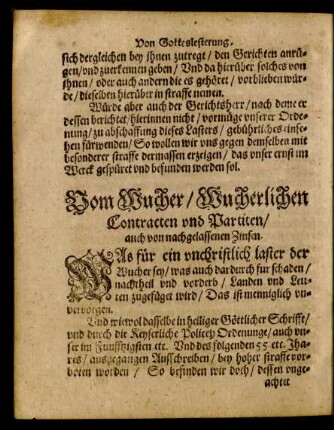 Von Gotteslesterung.
sich dergleichen bey jhnen zutregt / den Gerichten anrü-
gen / vnd zuerkennen geben / Vnd da hierüber solches von
jhnen / oder auch andern die es gehöret / vorblieben wür-
de / dieselben hierüber in straffe nemen.
Würde aber auch der Gerichtsherr / nach deme er
dessen berichtet / hierinnen nicht / vormüge vnserer Orde-
nung / zu abschaffung dieses Lasters / gebührliches einse-
hen fürwenden / So wollen wir vns gegen demselben mit
besonderer straffe dermassen erzeigen / das vnser ernst im
Werck gespüret vnd befunden werden sol.
Vom Wucher / Wucherlichen
Contracten vnd Partiten /
auch von nachgelassenen Zinsen.
WAs für ein vnchristlich laster der
Wucher sey / was auch dardurch für schaden /
nachtheil vnd vorderb / Landen vnd Leu-
ten zugefüget wird / Das ist menniglich vn-
vervorgen.
Vnd wiewol dasselbe in heiliger Göttlicher Schrifft /
vnd durch die Keyserliche Policey Ordenunge / auch vn-
ser im Funfftzigsten etc. Vnd des folgenden 55 etc. Jha-
res / ausgegangen Ausschreiben / bey hoher straffe vor-
boten worden / So befinden wir doch / dessen vnge-
achtet